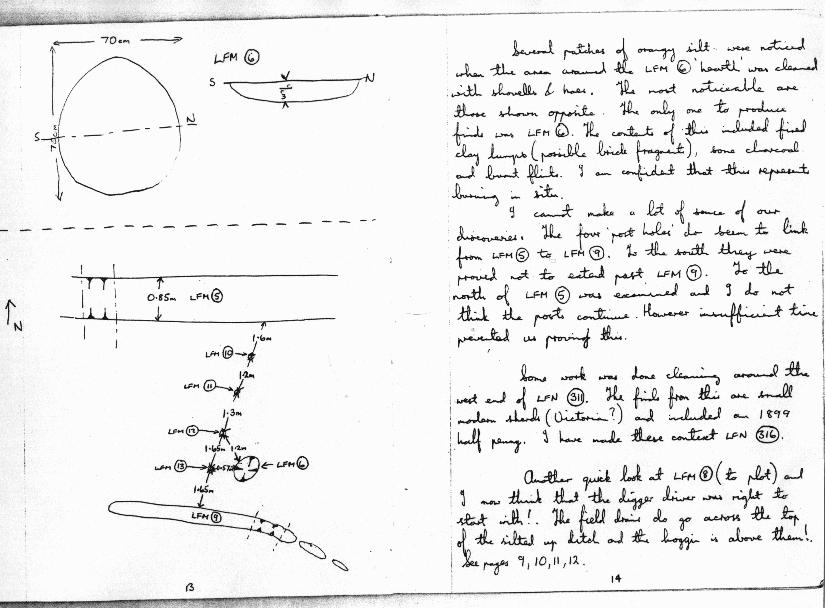 70cm
LFM 6
S
N
3
S
N
70cm
0.85m LFM 5
N
1.6m
LFM 10
1.2m
LFM 11
1.3m
LFM 12
1.65m 1.2m
LFM 13
LFM 6
1.65m
LFM 9
13
Several patches of orangy silt were noticed
when the area around the LFM 6 'hearth' was cleaned
with shovells & hoes. The most noticeable are
those shown opposite. The only one to produce
finds was LFM 6. The content of this included fired
clay lumps (possible brick fragment), some charcoal
and burnt flint. I am confident that this represents
burning in situ.
I cannot make a lot of sence of our
discoveries. The four 'post holes' do seem to link
from LFM 5 to LFM 9. To the south they were
proved not to extend past LFM 9. To the
north of LFM 5 was examined and I do not
think the posts continue. However insufficient time
prevented us proving this.
Some work was done cleaning around the
west end of LFN 311. The finds from this are small
modern sherds (Victoria?) and included an 1899
half penny. I have made these context LFN 316.
Another quick look at LFM 8 (to plot) and
I now think that the digger driver was right to
start with!. The field drains do go across the top
of the silted up ditch and the hoggin is above them!.
See pages 9, 10, 11, 12.
14